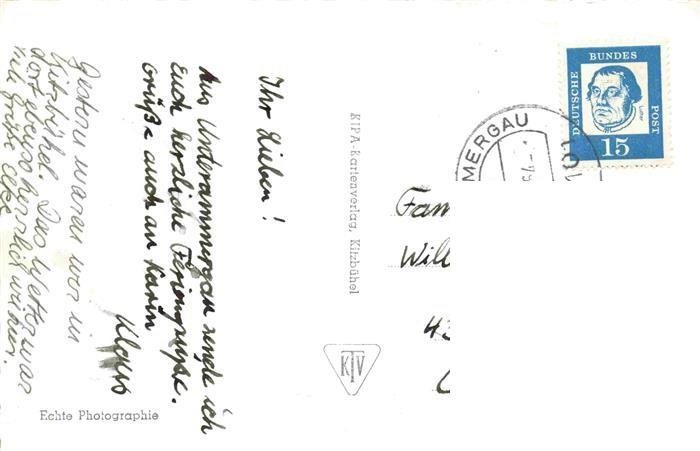 Ihr Lieben!
Aus Unterammergau sende ich
Euch herzliche Feriengrüße.
Grüße auch an Karin
Klaus
Gestern waren wir in
Kitzbühel. Das Wetter war
dort ebenso herrlich wie hier.
KIPA-Kartenverlag, Kitzbühel
KTV
Echte Photographie
DEUTSCHE
BUNDES
POST
Luther
15
MERGAU
Fam
Will
43